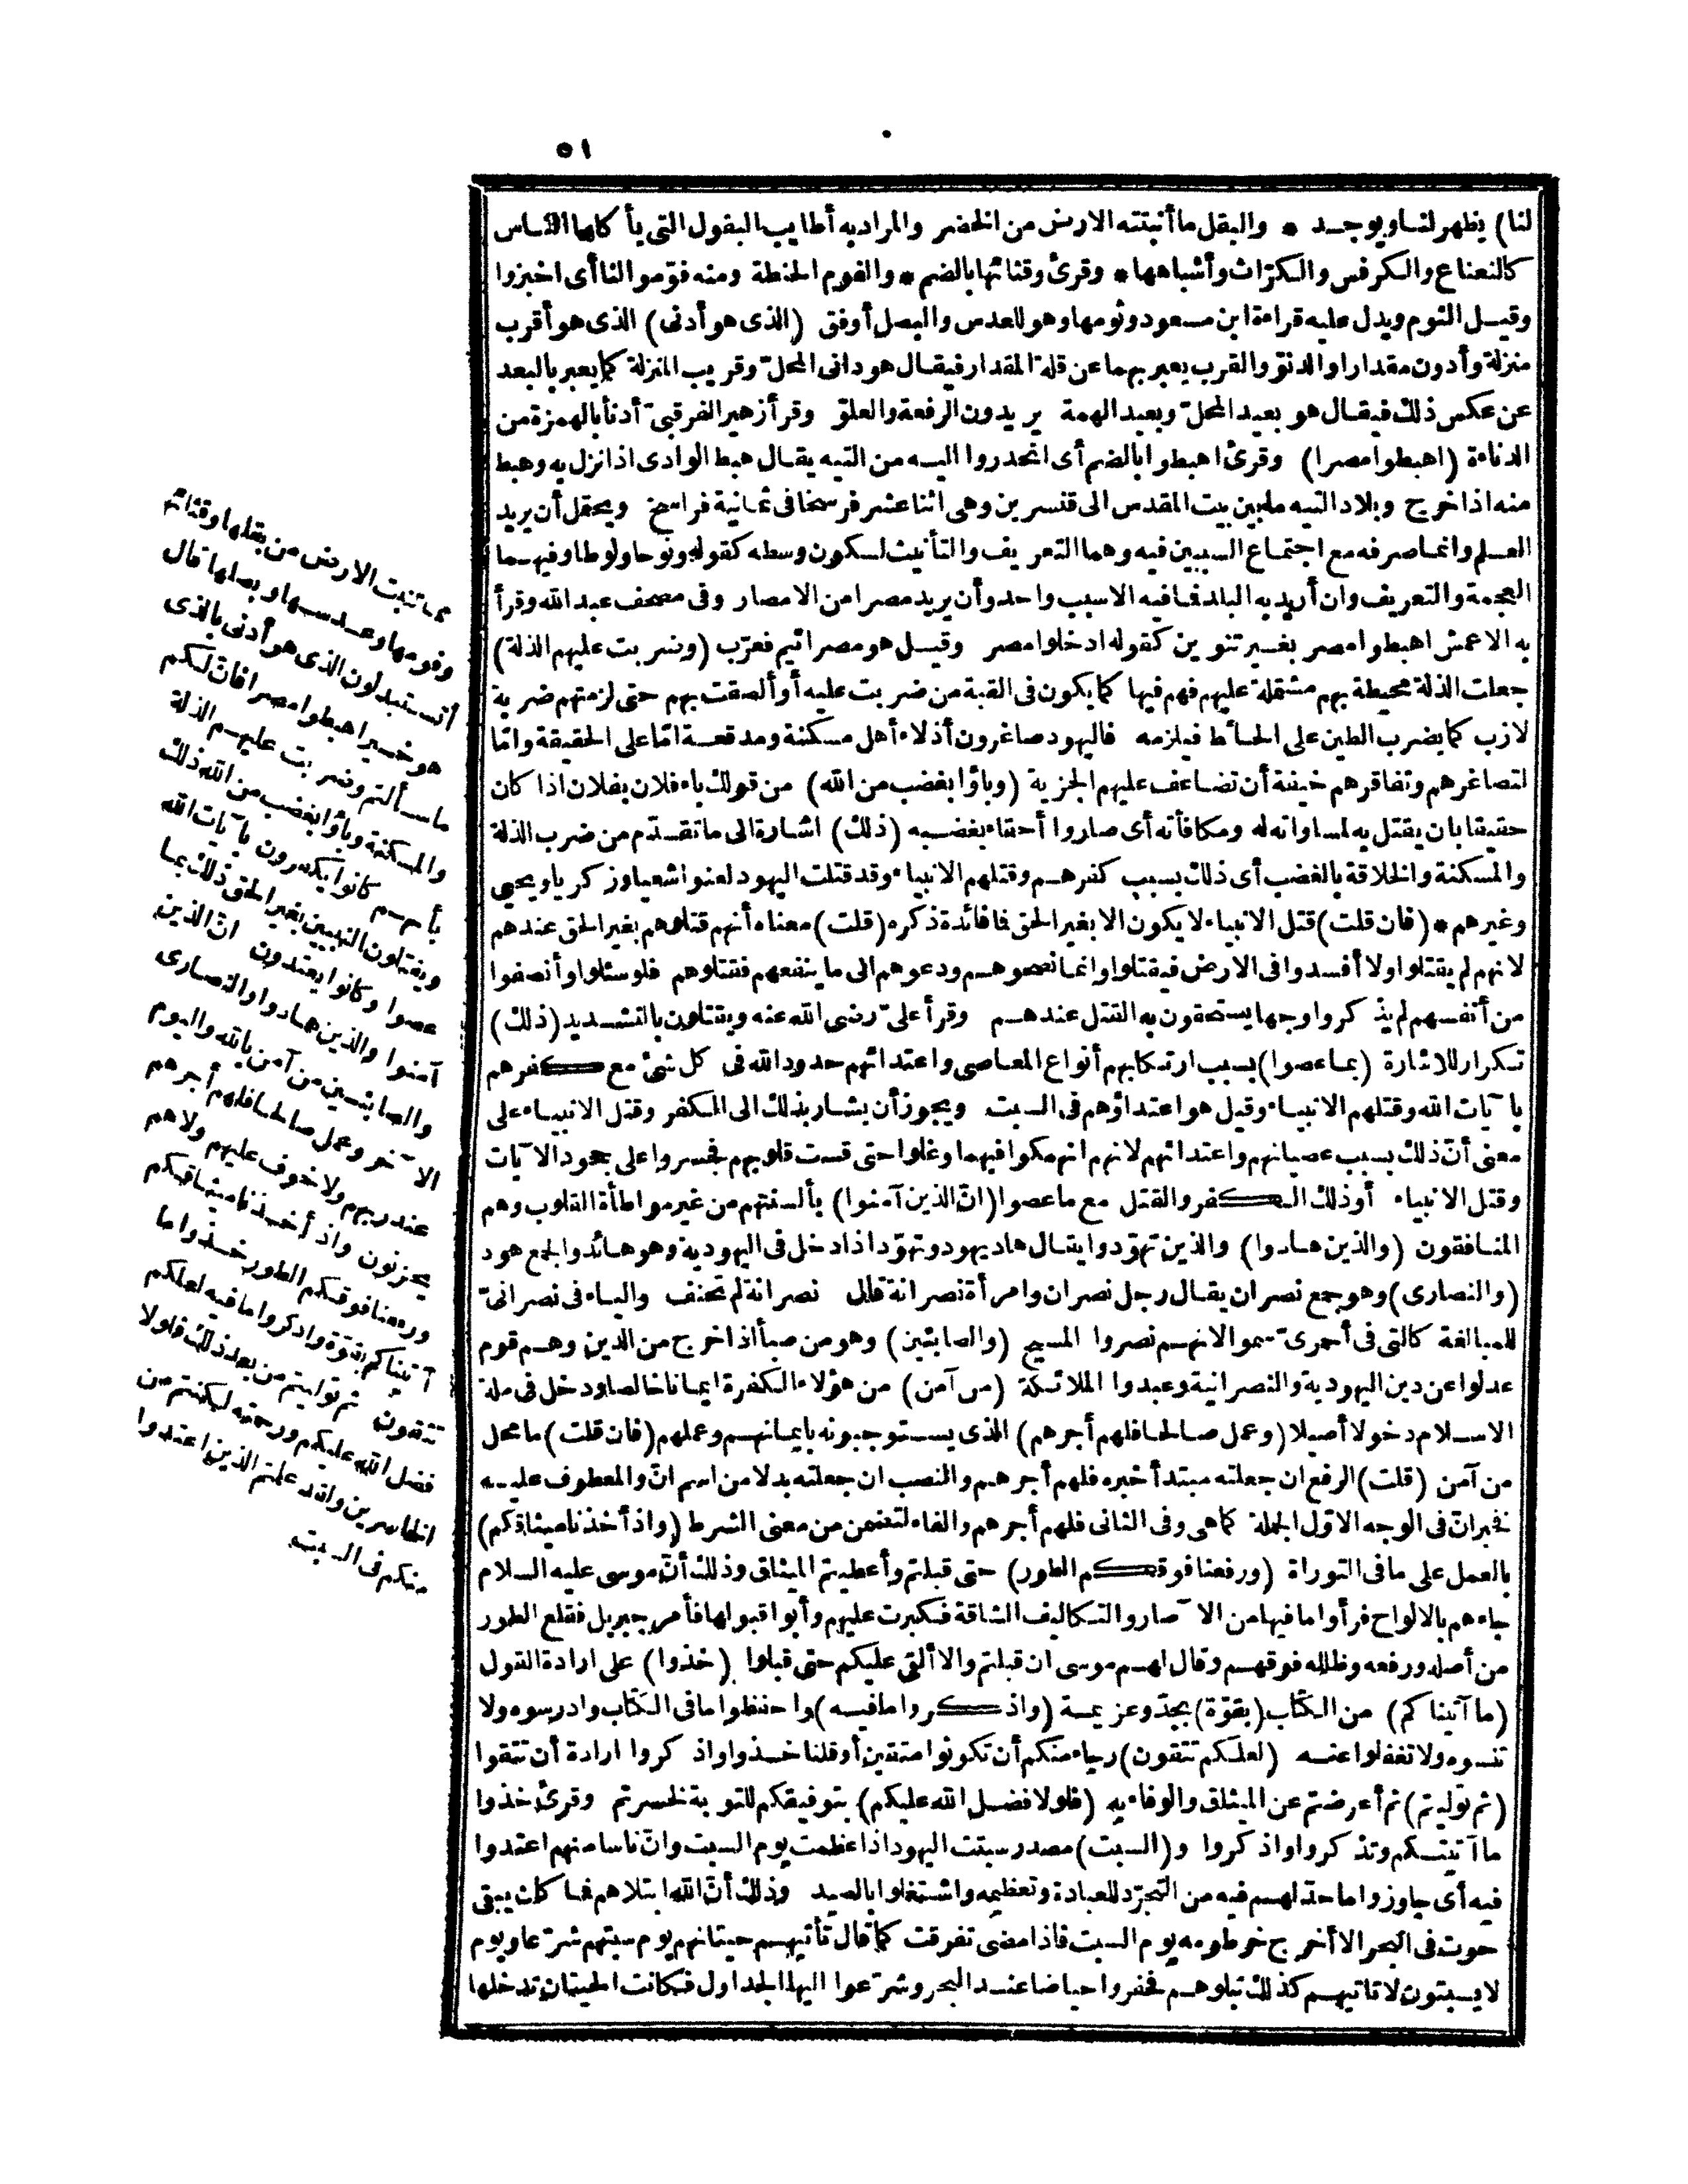 ٥١
لنا) يظهر لنا ويوجد * والبقل ما أنبتته الارض من الخضر والمراد به أطايب البقول التى يأكلها الناس
كالنعناع والكرفس والكرّاث وأشباهها * وقرئ وقثائها بالضم * والفوم الحنطة ومنه فوّموا لنا أى اخبزوا
وقيل الثوم ويدل عليه قراءة ابن مسعود وثومها وهو للعدس والبصل أوفق (الذى هو أدنى) الذى هو أقرب
منزلة وأدون مقدارا والدنوّ والقرب يعبر بهما عن قلة المقدار فيقال هو دانى المحلّ وقريب المنزلة كما يعبر بالبعد
عن عكس ذلك فيقال هو بعيد المحلّ وبعيد الهمة يريدون الرفعة والعلوّ وقرأ زهير الفرقبىّ أدنأ بالهمزة من
الدناءة (اهبطوا مصرا) وقرئ اهبطوا بالضم أى انحدروا اليه من التيه يقال هبط الوادى اذا نزل به وهبط
منه اذا خرج وبلاد التيه ما بين بيت المقدس الى قنسرين وهى اثنا عشر فرسخا فى ثمانية فراسخ ويحتمل أن يريد
العلم وانما صرفه مع اجتماع السببين فيه وهما التعريف والتأنيث لسكون وسطه كقوله ونوحا ولوطا وفيهما
العجمة والتعريف وان أريد به البلد فما فيه الا سبب واحد وأن يريد مصرا من الامصار وفى مصحف عبد الله وقرأ
به الاعمش اهبطوا مصر بغير تنوين كقوله ادخلوا مصر وقيل هو مصرائيم فعرّب (وضربت عليهم الذلة)
جعلت الذلة محيطة بهم مشتملة عليهم فهم فيها كما يكون فى القبة من ضربت عليه أو ألصقت بهم حتى لزمتهم ضربة
لازب كما يضرب الطين على الحائط فيلزمه فاليهود صاغرون أذلاء أهل مسكنة ومدقعة امّا على الحقيقة وامّا
لتصاغرهم وتفاقرهم خيفة أن تضاعف عليهم الجزية (وباؤا بغضب من الله) من قولك باء فلان بفلان اذا كان
حقيقا بان يقتل به لمساواته له ومكافأته أى صاروا أحقاء بغضبه (ذلك) اشارة الى ما تقدّم من ضرب الذلة
والمسكنة والخلاقة بالغضب أى ذلك بسبب كفرهم وقتلهم الانبياء وقد قتلت اليهود لعنوا شعيا وزكريا ويحيى
وغيرهم * (فان قلت) قتل الانبياء لا يكون الا بغير الحق فما فائدة ذكره (قلت) معناه أنهم قتلوهم بغير الحق عندهم
لانهم لم يقتلوا ولا أفسدوا فى الارض فيقتلوا وانما نصحوهم ودعوهم الى ما ينفعهم فقتلوهم فلو سئلوا وأنصفوا
من أنفسهم لم يذكروا وجها يستحقون به القتل عندهم وقرأ علىّ رضى الله عنه ويقتلون بالتشديد (ذلك)
تكرار للاشارة (بما عصوا) بسبب ارتكابهم أنواع المعاصى واعتدائهم حدود الله فى كل شئ مع كفرهم
بآيات الله وقتلهم الانبياء وقيل هو اعتداؤهم فى السبت ويجوز أن يشار بذلك الى الكفر وقتل الانبياء على
معنى أنّ ذلك بسبب عصيانهم واعتدائهم لانهم انهمكوا فيهما وغلوا حتى قست قلوبهم فجسروا على جحود الآيات
وقتل الانبياء أو ذلك الكفر والقتل مع ما عصوا (انّ الذين آمنوا) بألسنتهم من غير مواطأة القلوب وهم
المنافقون (والذين هادوا) والذين تهوّدوا يقال هاد يهود وتهوّد اذا دخل فى اليهودية وهو هائد والجمع هود
(والنصارى) وهو جمع نصران يقال رجل نصران وامرأة نصرانة قال نصرانة لم تحنف والياء فى نصرانىّ
للمبالغة كالتى فى أحمرىّ سموا لانهم نصروا المسيح (والصابئين) وهو من صبأ اذا خرج من الدين وهم قوم
عدلوا عن دين اليهودية والنصرانية وعبدوا الملائكة (من آمن) من هؤلاء الكفرة ايمانا خالصا ودخل فى ملة
الاسلام دخولا أصيلا (وعمل صالحا فلهم أجرهم) الذى يستوجبونه بايمانهم وعملهم (فان قلت) ما محل
من آمن (قلت) الرفع ان جعلته مبتدأ خبره فلهم أجرهم والنصب ان جعلته بدلا من اسم انّ والمعطوف عليه
فخبر انّ فى الوجه الاوّل الجملة كما هى وفى الثانى فلهم أجرهم والفاء لتضمن من معنى الشرط (واذ أخذنا ميثاقكم)
بالعمل على ما فى التوراة (ورفعنا فوقكم الطور) حتى قبلتم وأعطيتم الميثاق وذلك أنّ موسى عليه السلام
جاءهم بالالواح فرأوا ما فيها من الآصار والتكاليف الشاقة فكبرت عليهم وأبوا قبولها فأمر جبريل فقلع الطور
من أصله ورفعه وظلله فوقهم وقال لهم موسى ان قبلتم والا ألقى عليكم حتى قبلوا (خذوا) على ارادة القول
(ما آتيناكم) من الكتاب (بقوّة) بجدّ وعزيمة (واذكروا ما فيه) واحفظوا ما فى الكتاب وادرسوه ولا
تنسوه ولا تغفلوا عنه (لعلكم تتقون) رجاء منكم أن تكونوا متقين أو قلنا خذوا واذكروا ارادة أن تتقوا
(ثم توليتم) ثم أعرضتم عن الميثاق والوفاء به (فلولا فضل الله عليكم) بتوفيقكم للتوبة لخسرتم وقرئ خذوا
ما آتيتكم وتذكروا واذكروا و (السبت) مصدر سبتت اليهود اذا عظمت يوم السبت وانّ ناسا منهم اعتدوا
فيه أى جاوزوا ما حدّ لهم فيه من التجرّد للعبادة وتعظيمه واشتغلوا بالصيد وذلك أنّ الله ابتلاهم فما كان يبقى
حوت فى البحر الا أخرج خرطومه يوم السبت فاذا مضى تفرقت كما قال تأتيهم حيتانهم يوم سبتهم شرّعا ويوم
لا يسبتون لا تاتيهم كذلك نبلوهم فحفروا حياضا عند البحر وشرّعوا اليها الجداول فكانت الحيتان تدخلها
مما تنبت الارض من بقلها وقثائها
وفومها وعدسها وبصلها قال
أتستبدلون الذى هو أدنى بالذى
هو خير اهبطوا مصرا فانّ لكم
ما سألتم وضربت عليهم الذلة
والمسكنة وباؤا بغضب من الله ذلك
بأنهم كانوا يكفرون بآيات الله
ويقتلون النبيين بغير الحق ذلك بما
عصوا وكانوا يعتدون انّ الذين
آمنوا والذين هادوا والنصارى
والصابئين من آمن بالله واليوم
الآخر وعمل صالحا فلهم أجرهم
عند ربهم ولا خوف عليهم ولا هم
يحزنون واذ أخذنا ميثاقكم
ورفعنا فوقكم الطور خذوا ما
آتيناكم بقوّة واذكروا ما فيه لعلكم
تتقون ثم توليتم من بعد ذلك فلولا
فضل الله عليكم ورحمته لكنتم من
الخاسرين ولقد علمتم الذين اعتدوا
منكم فى السبت